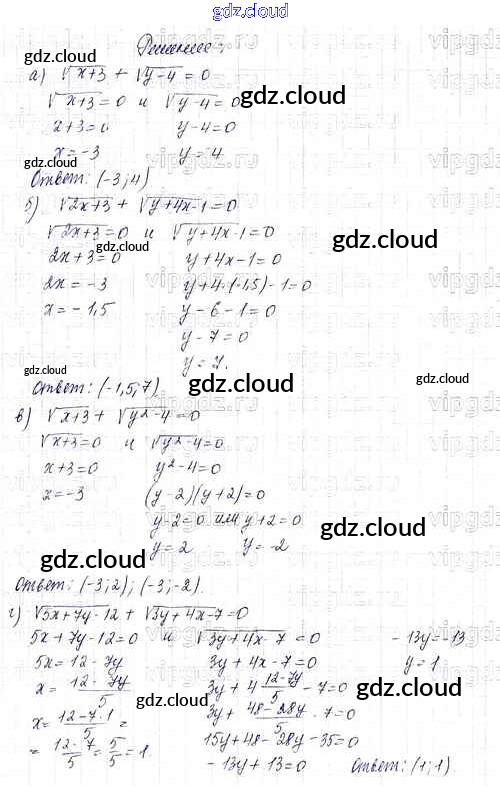 gdz.cloud
Решение:
а) √x+3 + √y-4 = 0
√x+3 = 0 и √y-4 = 0
x+3=0 y-4=0
x=-3 y=4
Ответ: (-3;4)
б) √2x+3 + √y+4x-1 = 0
√2x+3 = 0 и √y+4x-1 = 0
2x+3=0 y+4x-1=0
2x=-3 y+4·(-1,5)-1=0
x=-1,5 y-6-1=0
y-7=0
y=7.
Ответ: (-1,5;7)
в) √x+3 + √y²-4 = 0
√x+3=0 и √y²-4=0
x+3=0 y²-4=0
x=-3 (y-2)(y+2)=0
y-2=0 или y+2=0
y=2 y=-2
Ответ: (-3;2); (-3;-2).
г) √5x+7y-12 + √3y+4x-7=0
5x+7y-12=0 и √3y+4x-7=0 -13y=-13
5x=12-7y 3y+4x-7=0 y=1
x=12-7y/5 3y+4 12-7y/5 -7=0
x=12-7·1/5= 3y+48-28y/5-7=0
=12-7/5=5/5=1. 15y+48-28y-35=0
-13y+13=0 Ответ: (1;1).
gdz.cloud
gdz.cloud
gdz.cloud
gdz.cloud
gdz.cloud
gdz.cloud
gdz.cloud
gdz.cloud
gdz.cloud
gdz.cloud
gdz.cloud
gdz.cloud
gdz.cloud